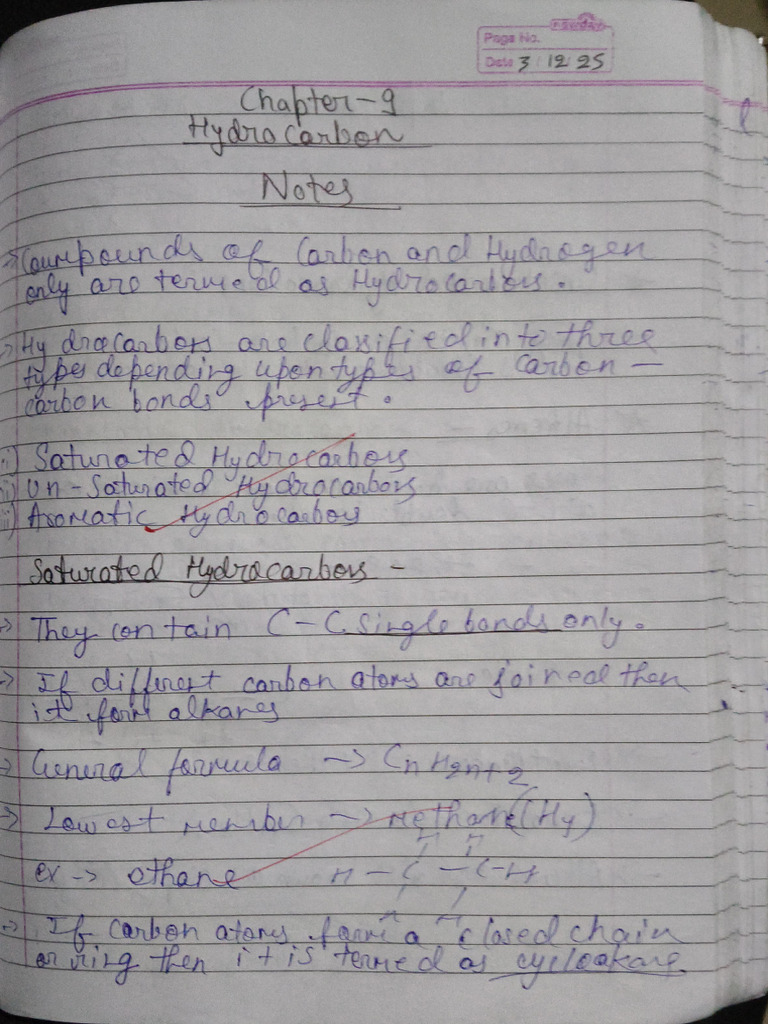 Page No.
Date 3 12 25
Chapter-9
Hydrocarbon
Notes
→ Compounds of Carbon and Hydrogen
only are termed as Hydrocarbons.
→ Hydrocarbons are classified into three
types depending upon types of Carbon -
carbon bonds present.
i) Saturated Hydrocarbons
ii) Un-Saturated Hydrocarbons
iii) Aromatic Hydrocarbons
Saturated Hydrocarbons -
→ They contain C-C single bonds only.
→ If different carbon atoms are joined then
it form alkanes
→ General formula → CnH2n+2
→ Lowest member → Methane (H4)
H H
ex → ethane H - C - C - H
H H
→ If carbon atoms form a closed chain
or ring then it is termed as cycloakane.